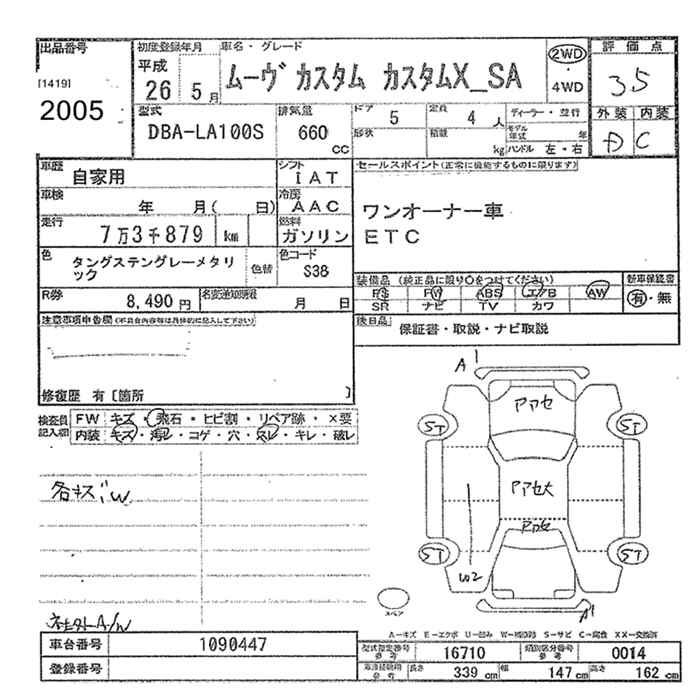 出品番号
[1419]
2005
初度登録年月
平成
26 5月
車名・グレード
ムーヴ カスタム カスタムX_SA
2WD
・
4WD
評価点
3.5
型式
DBA-LA100S
排気量
660
cc
ドア 5
定員 4 人
形状
積載 kg
ディーラー・並行
モデル年式 年
ハンドル 左・右
外装 内装
D C
車歴
自家用
シフト
IAT
セールスポイント(正常に機能するものに限ります)
ワンオーナー車
ETC
車検
年 月( 日)
冷房
AAC
走行
7万3千879 km
燃料
ガソリン
色
タングステングレーメタリック
色替
色コード
S38
装備品 (純正品に限り○をつけてください)
新車保証書
PS PW ABS エアB AW
有・無
SR ナビ TV カワ
R券
8,490 円
名変通知期限
月 日
後日品
保証書・取説・ナビ取説
注意事項申告欄(不具合内容等は具体的に記入して下さい)
修復歴 有〔箇所 〕
検査員
記入欄
FW キズ・飛石・ヒビ割・リペア跡・×要
内装 キズ・汚レ・コゲ・穴・スレ・キレ・破レ
各キズW
社外A/W
A1
アアセ
ST
ST
アアセ大
アアセ
ST
ST
W2
A1
スペア
A-キズ E-エクボ U-凹み W-補修跡 S-サビ C-腐食 XX-交換済
車台番号
1090447
登録番号
型式指定番号
参考
16710
類別区分番号
参考
0014
車両接触用
参考
長さ 339 cm
幅 147 cm
高さ 162 cm